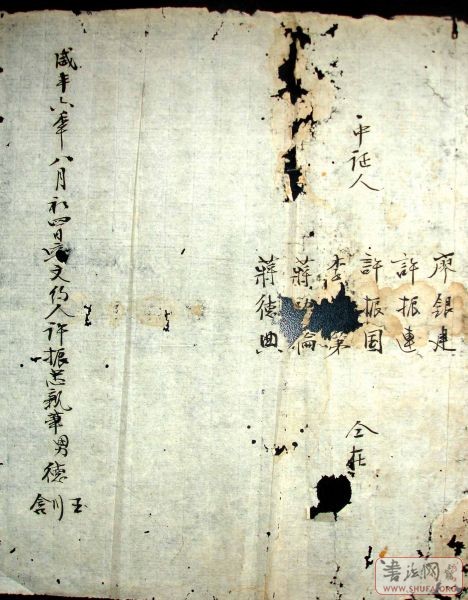 中证人
廖銀建
許振連
許振国
李 第
蔣 倫
蔣德典
仝在
咸丰六年八月初四日立文约人許振忠親筆男德
玉
川
书法网
WWW.SHUFA.ORG